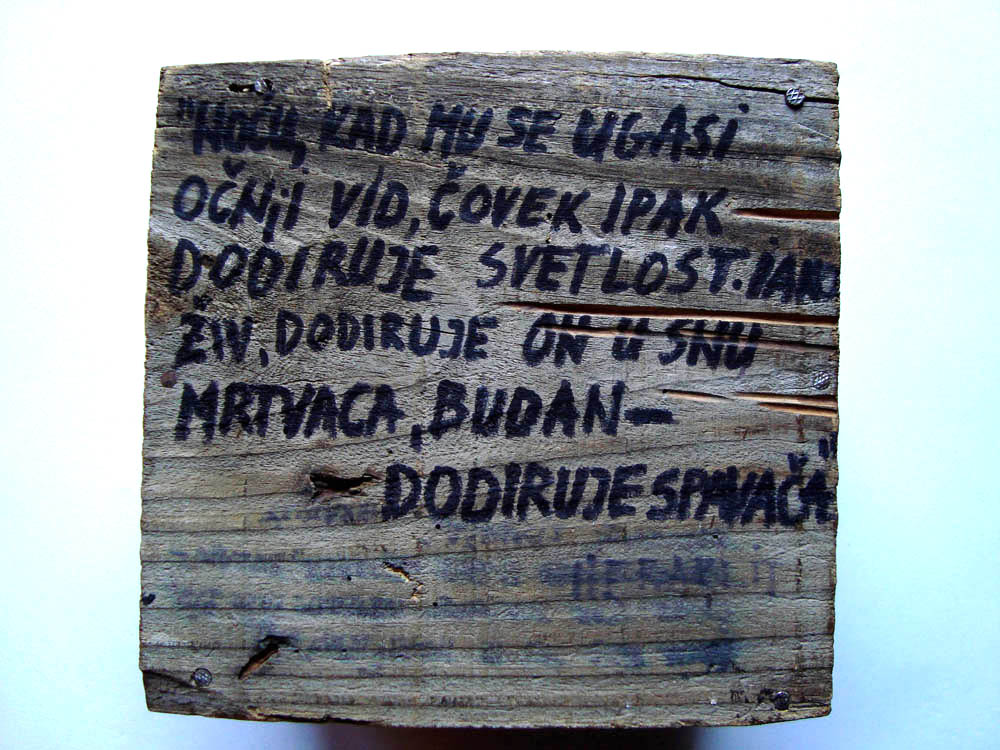 "Noću, KAD MU SE UGASI
OČNjI VID, ČOVEK IPAK
DODIRUJE SVETLOST. IAKO
ŽIV, DODIRUJE ON U SNU
MRTVACA, BUDAN—
DODIRUJE SPAVAČA"